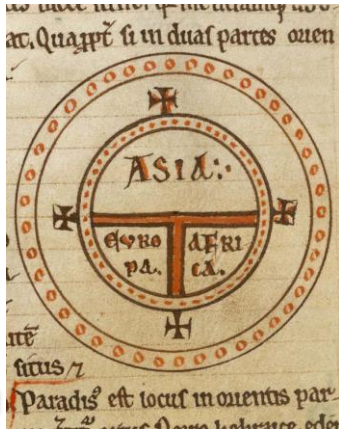 at. Quappt̄ si in duas partes orien
ASIA:·
EVRO
PA.
AFRI
CA.
situs
Paradis᷒ est locus in orientis par